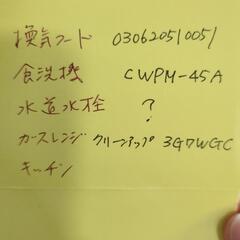 換気フード 03062051005１
食洗機 CWPM-45A
水道水栓 ?
ガースレンジ クリーンアップ 3G7WGC
キッチン